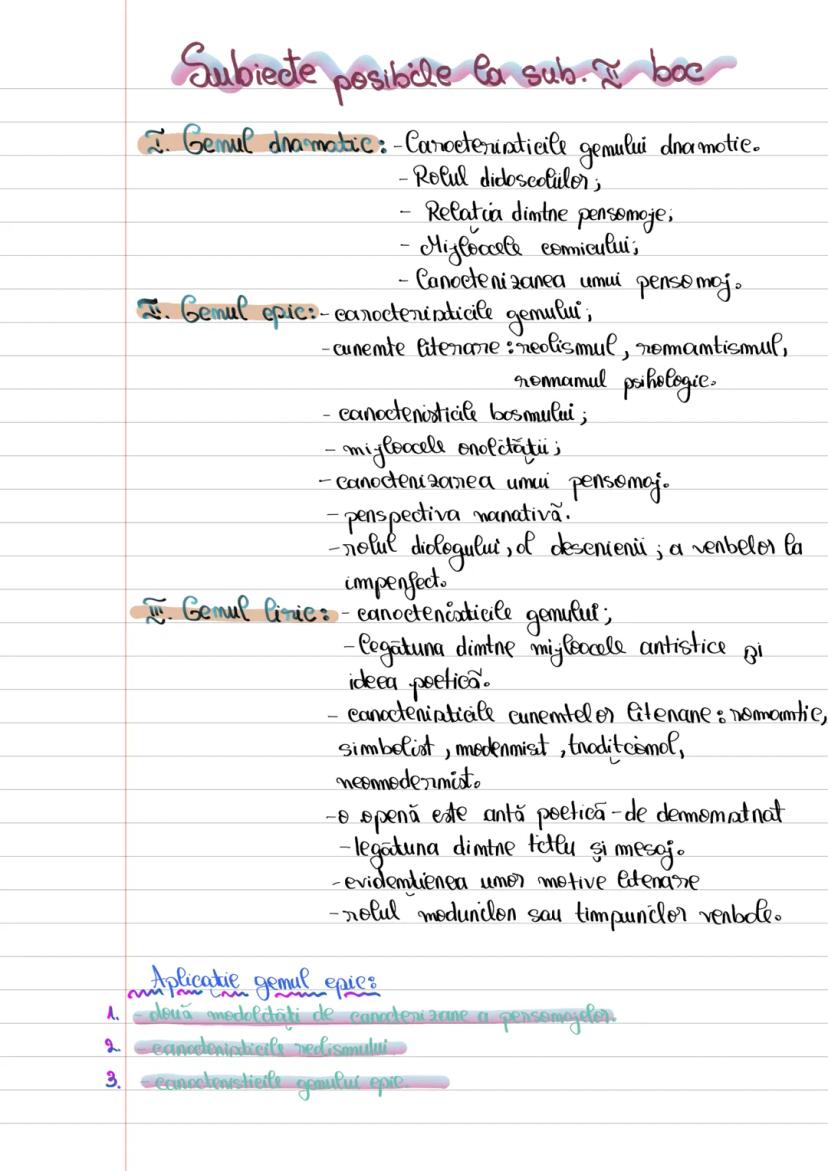 Subiecte posibile la sub. II bac
I. Genul dramatic: - Caracteristicile genului dramatic.
- Rolul didascaliilor;
- Relația dintre personaje;
- Mijloacele comicului;
- Caracterizarea unui personaj.
II. Genul epic: - caracteristicile genului;
- curente literare: realismul, romantismul,
romanul psihologic.
- caracteristicile basmului;
- mijloacele oralității;
- caracterizarea unui personaj.
- perspectiva narativă.
- rolul dialogului, al descrierii; a verbelor la
imperfect.
III. Genul liric: - caracteristicile genului;
- legătura dintre mijloacele artistice și
ideea poetică.
- caracteristicile curentelor literare: romantic,
simbolist, modernist, tradițional,
neomodernist.
- o operă este artă poetică - de demonstrat
- legătura dintre titlu și mesaj.
- evidențierea unor motive literare
- rolul modurilor sau timpurilor verbale.
Aplicație genul epic:
1. - două modalități de caracterizare a personajelor.
2. - caracteristicile realismului
3. - caracteristicile genului epic.